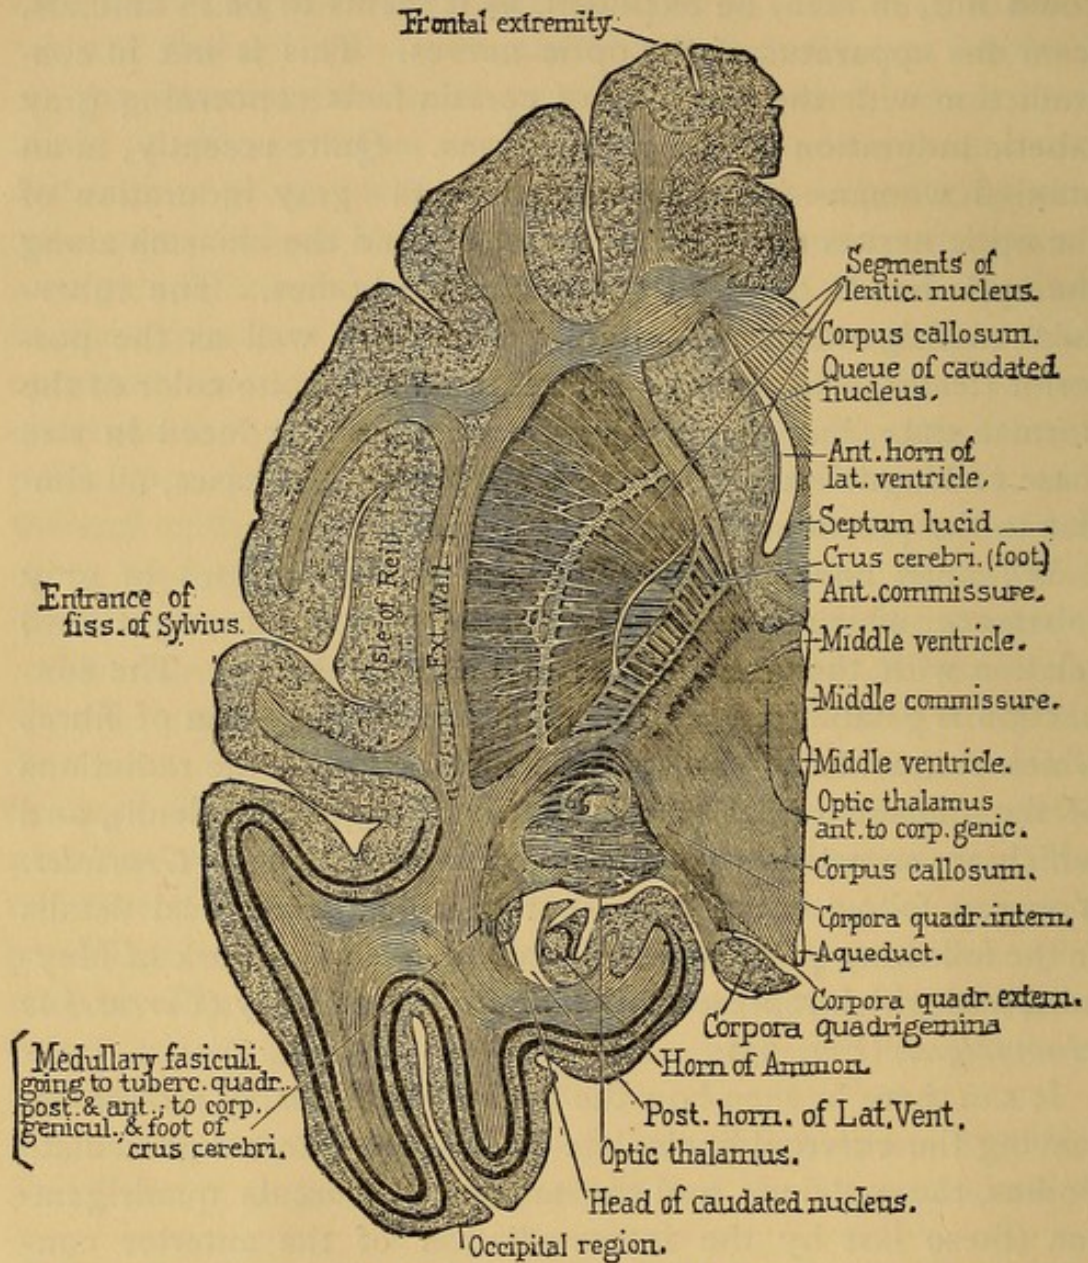 Frontal extremity.
Segments of
lentic. nucleus.
Corpus callosum.
Queue of caudated
nucleus.
Ant. horn of
lat. ventricle.
Septum lucid
Crus cerebri. (foot)
Ant. commissure.
Middle ventricle.
Middle commissure.
Middle ventricle.
Optic thalamus
ant. to corp. genic.
Corpus callosum.
Corpora quadr. intern.
Aqueduct.
Corpora quadr. extern.
Corpora quadrigemina
Horn of Ammon.
Post. horn. of Lat. Vent.
Optic thalamus.
Head of caudated nucleus.
Occipital region.
Entrance of
fiss. of Sylvius.
Isle of Reil
Ext. Wall
Medullary fasiculi
going to tuberc. quadr.
post. & ant.; to corp.
genicul. & foot of
crus cerebri.